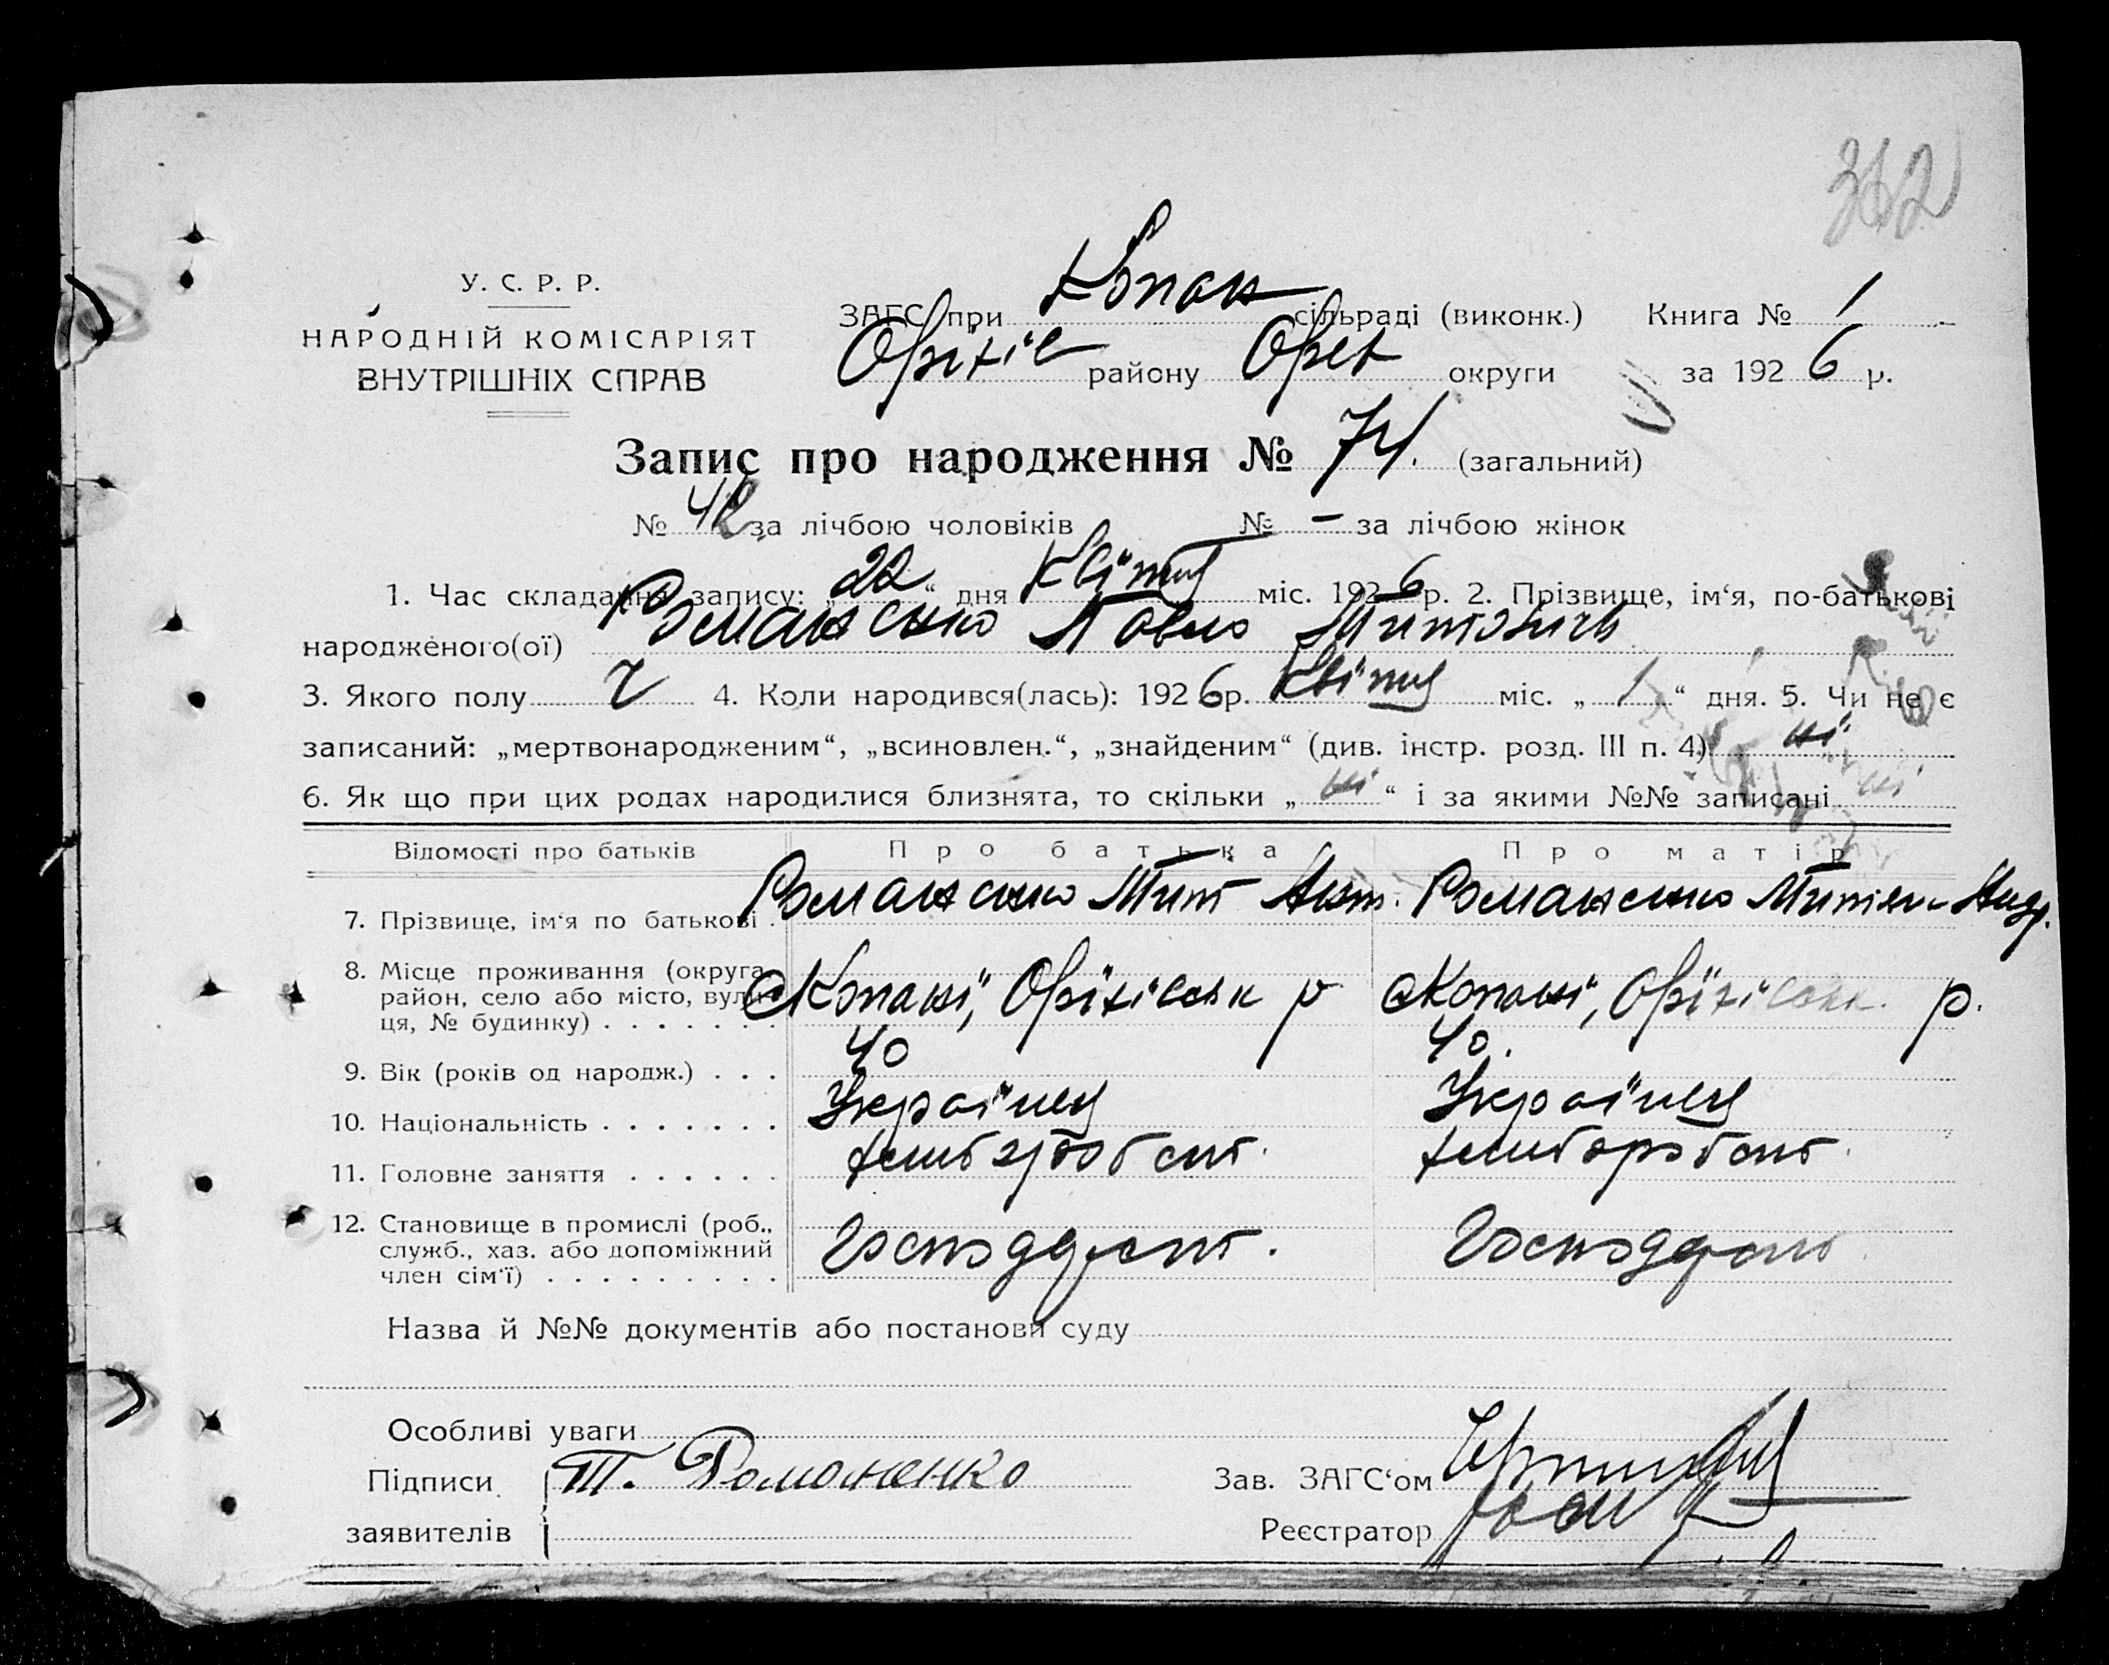 362
У. С. Р. Р.
НАРОДНІЙ КОМІСАРІЯТ
ВНУТРІШНІХ СПРАВ
ЗАГС при Копан сільраді (виконк.) Книга № 1
Оріхів району округи за 1926 р.
Запис про народження № 74. (загальний)
№ 42 за лічбою чоловіків № - за лічбою жінок
1. Час складання запису: „22“ дня Квітня міс. 1926 р. 2. Прізвище, ім‘я, по-батькові
народженого(ої) Романенко Павло Титович
3. Якого полу ч 4. Коли народився(лась): 1926 р. Квітня міс. „1“ дня. 5. Чи не є
записаний: „мертвонародженим“, „всиновлен.“, „знайденим“ (див. інстр. розд. III п. 4) ні
6. Як що при цих родах народилися близнята, то скільки „ні“ і за якими №№ записані ні
Відомості про батьків Про батька Про матір
7. Прізвище, ім‘я по батькові . Романенко Тит Романенко
8. Місце проживання (округа, район, село або місто, вулиця, № будинку) . . . . . . . с Копані, Оріхівськ р с Копані, Оріхівськ. р.
9. Вік (років од народж.) . . . 40 40.
10. Національність . . . . . . . Українця Українця
11. Головне заняття . . . . . .
12. Становище в промислі (роб., служб., хаз. або допоміжний член сім‘ї) . . . . . . . . .
Назва й №№ документів або постанови суду
Особливі уваги
Підписи Т. Романенко Зав. ЗАГС‘ом
заявителів Реєстратор